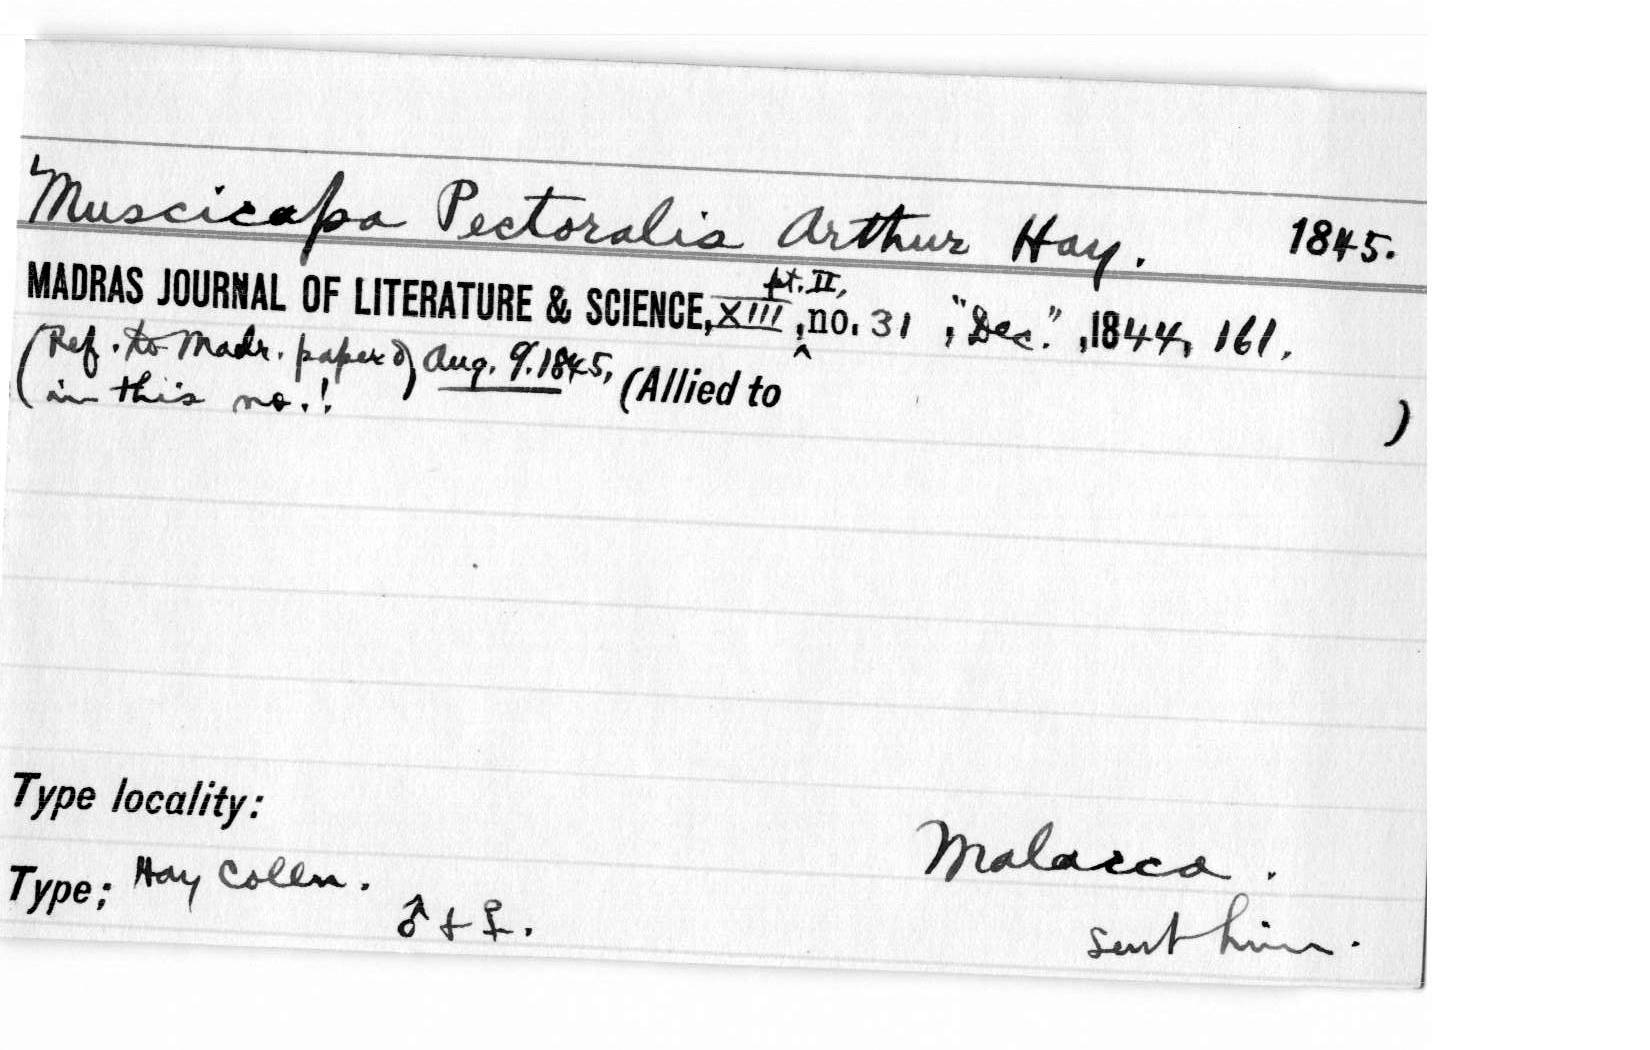 Muscicapa Pectoralis Arthur Hay. 1845.
MADRAS JOURNAL OF LITERATURE & SCIENCE, XIII, pt. II, no. 31, "Dec.", 1844, 161.
(Ref. to Madr. paper of Aug. 9. 1845, (Allied to )
in this no.!
Type locality: Malacca.
Type; Hay Colln. ♂ + ♀. sent him.